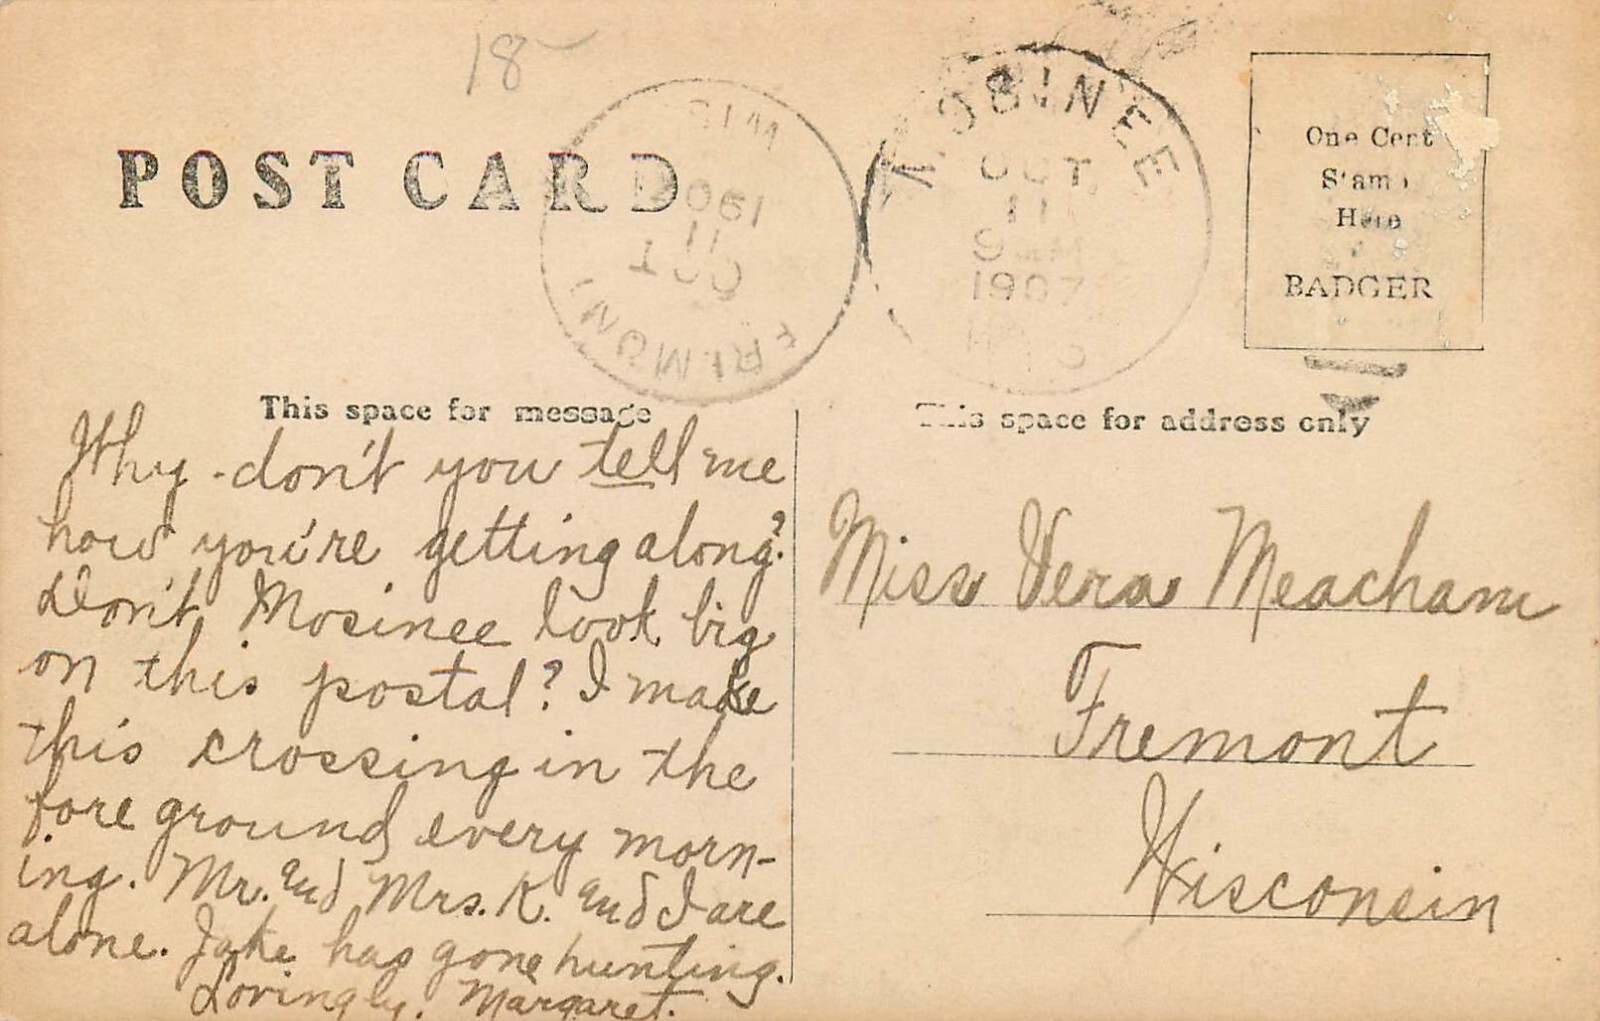 18
POST CARD
WIS
190
11
OCT
FREMONT
MOSINEE
OCT
11
9 AM
1907
WIS
One Cent
Stamp
Here
BADGER
This space for message
This space for address only
Why don't you tell me
how you're getting along?
Don't Mosinee look big
on this postal? I make
this crossing in the
fore ground every morn-
ing. Mr. and Mrs. K. and I are
alone. Jake has gone hunting.
Lovingly, Margaret.
Miss Vera Meacham
Fremont
Wisconsin